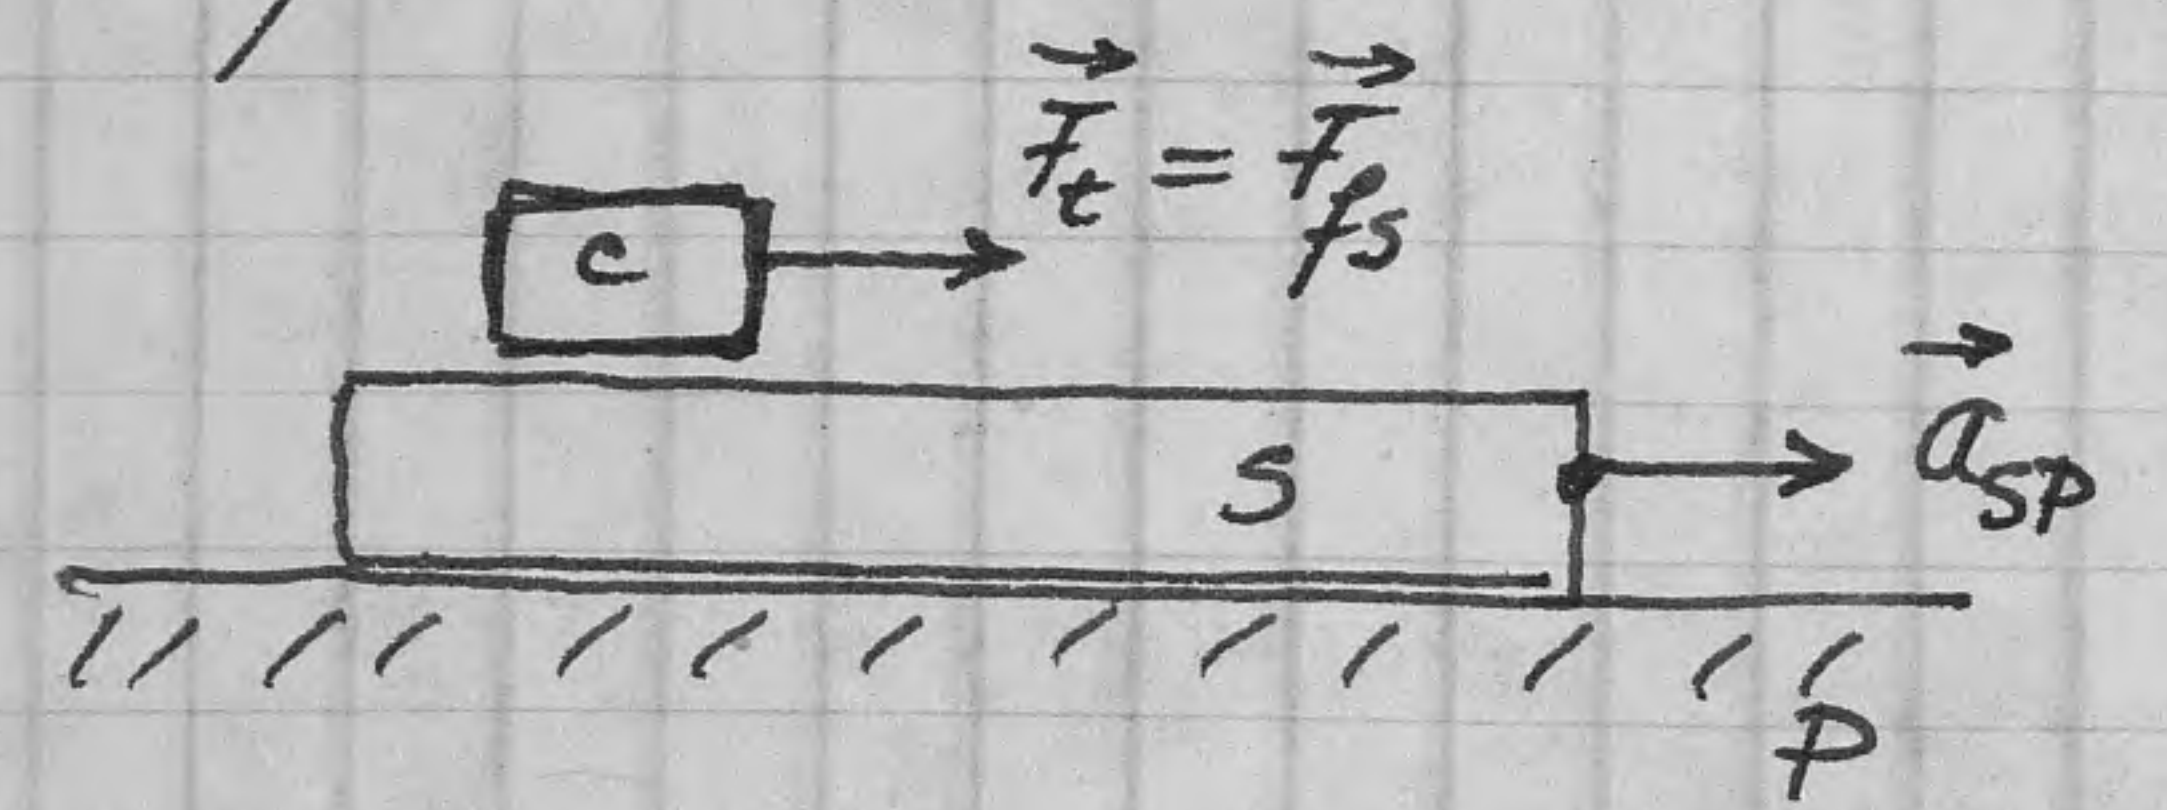 F⃗t = F⃗fs
c
a⃗SP
S
P